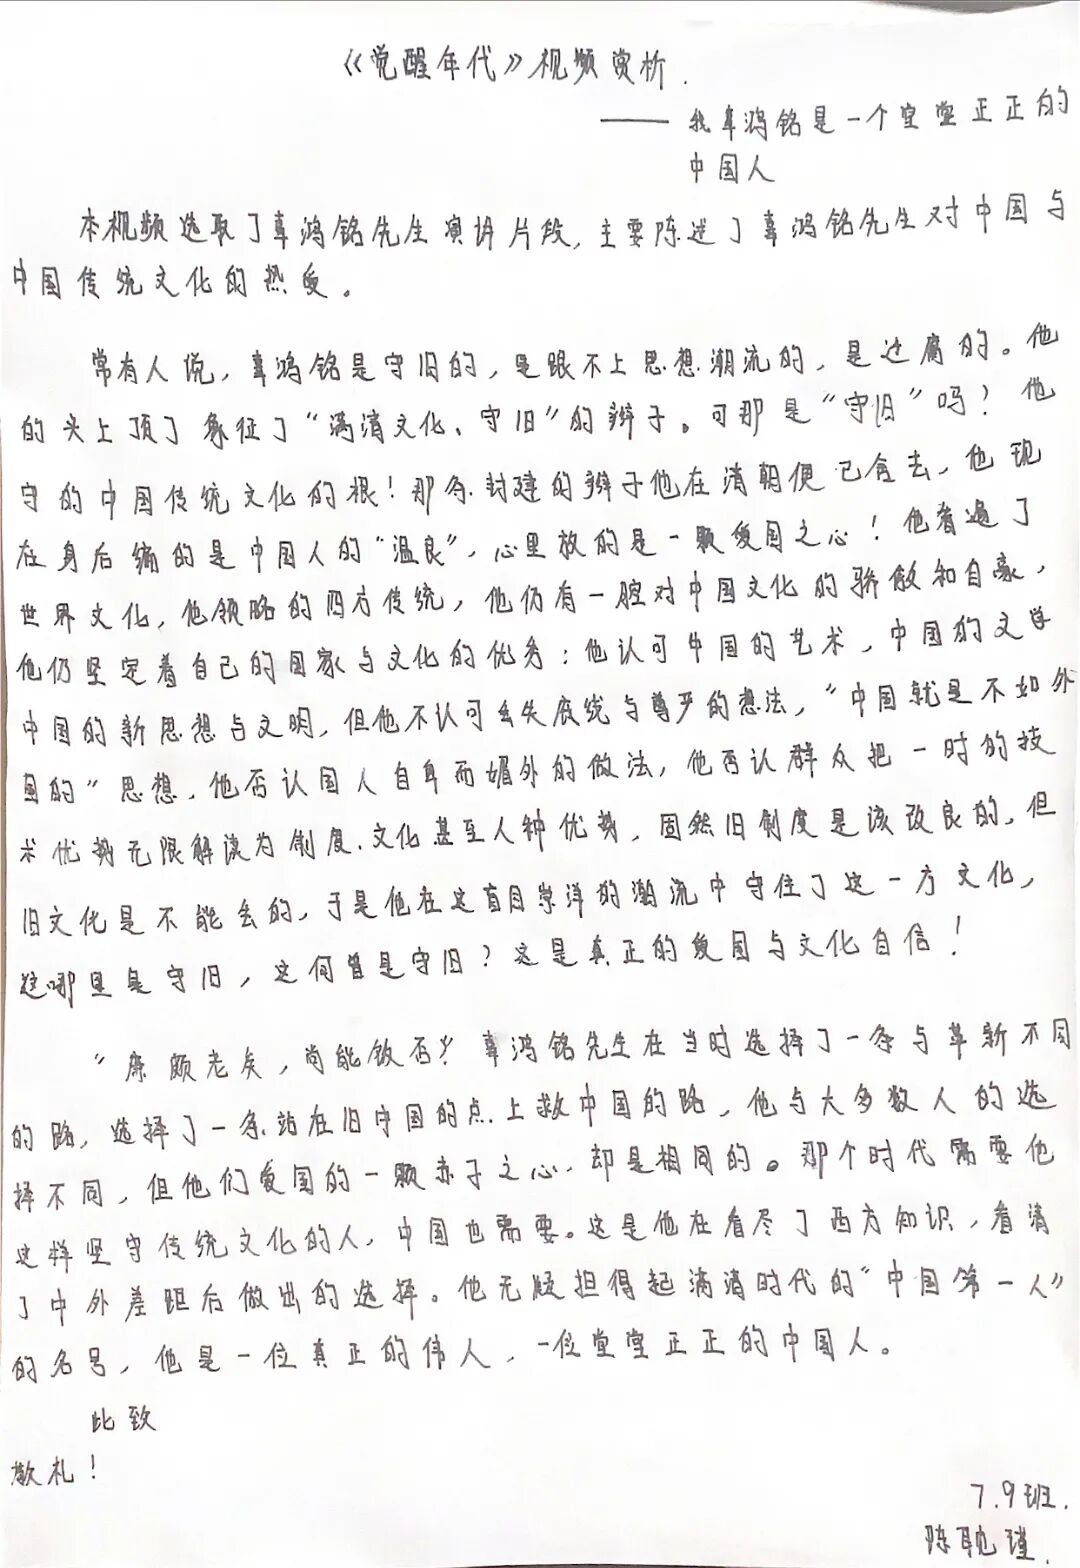 《觉醒年代》视频赏析.
—— 我辜鸿铭是一个堂堂正正的
中国人
本视频选取了辜鸿铭先生演讲片段,主要陈述了辜鸿铭先生对中国与
中国传统文化的热爱。
常有人说,辜鸿铭是守旧的,是跟不上思想潮流的,是迂腐的。他
的头上顶了象征了“满清文化、守旧”的辫子。可那是“守旧”吗?他
守的中国传统文化的根!那条封建的辫子他在清朝便已舍去,他现
在身后编的是中国人的“温良”,心里放的是一颗爱国之心!他看遍了
世界文化,他领略的四方传统,他仍有一腔对中国文化的骄傲和自豪,
他仍坚定着自己的国家与文化的优秀:他认可中国的艺术,中国的文学
中国的新思想与文明,但他不认可丢失底线与尊严的想法,“中国就是不如外
国的”思想,他否认国人自卑而媚外的做法,他否认群众把一时的技
术优势无限解读为制度、文化甚至人种优势,固然旧制度是该改良的,但
旧文化是不能丢的,于是他在这盲目崇洋的潮流中守住了这一方文化,
这哪里是守旧,这何曾是守旧?这是真正的爱国与文化自信!
“廉颇老矣,尚能饭否?”辜鸿铭先生在当时选择了一条与革新不同
的路,选择了一条站在旧中国的点上救中国的路,他与大多数人的选
择不同,但他们爱国的一颗赤子之心,却是相同的。那个时代需要他
这样坚守传统文化的人,中国也需要。这是他在看尽了西方知识,看清
了中外差距后做出的选择。他无疑担得起满清时代的“中国第一人”
的名号,他是一位真正的伟人,一位堂堂正正的中国人。
此致
敬礼!
7.9班.
陈耽瑾.